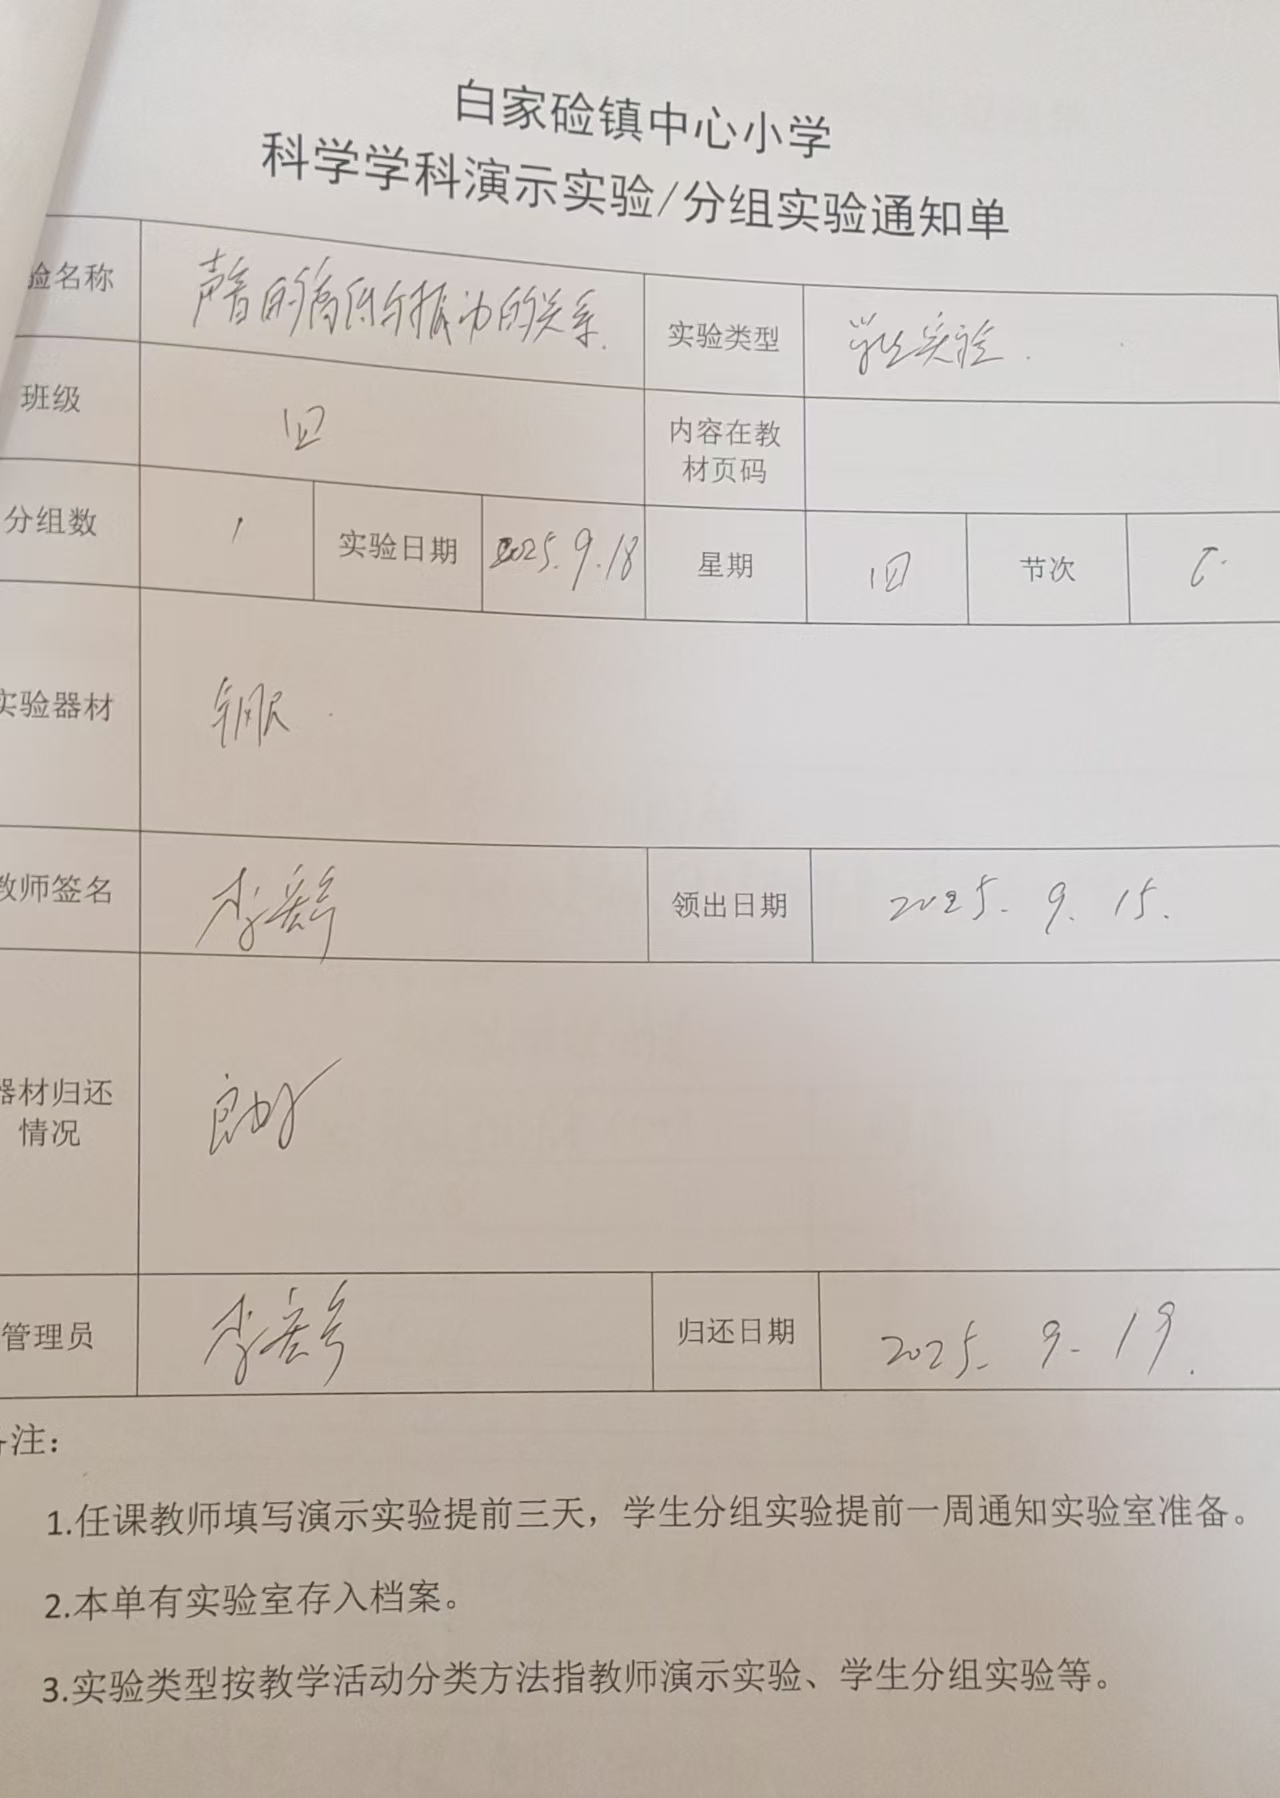 白家硷镇中心小学
科学学科演示实验/分组实验通知单
验名称 声音的高低与振动的关系. 实验类型 学生实验.
班级 四 内容在教
材页码
分组数 1 实验日期 2025.9.18 星期 四 节次
实验器材 钢尺.
教师签名 李 领出日期 2025. 9. 15.
器材归还
情况 良好
管理员 李 归还日期 2025. 9. 19.
备注：
1.任课教师填写演示实验提前三天，学生分组实验提前一周通知实验室准备。
2.本单有实验室存入档案。
3.实验类型按教学活动分类方法指教师演示实验、学生分组实验等。